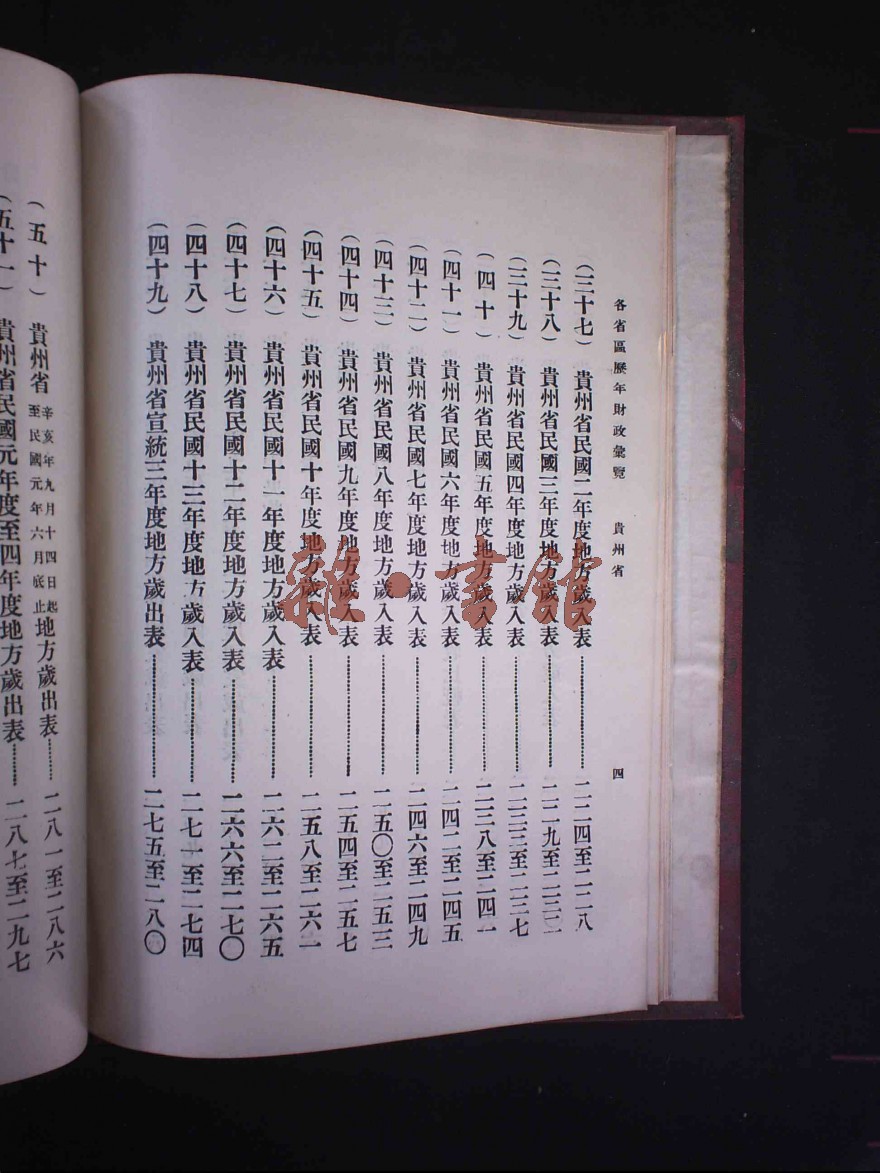 各省區歷年財政彙覽　貴州省　四
（三十七）貴州省民國二年度地方歲入表…………二二四至二二八
（三十八）貴州省民國三年度地方歲入表…………二二九至二三二
（三十九）貴州省民國四年度地方歲入表…………二三三至二三七
（四十）貴州省民國五年度地方歲入表…………二三八至二四一
（四十一）貴州省民國六年度地方歲入表…………二四二至二四五
（四十二）貴州省民國七年度地方歲入表…………二四六至二四九
（四十三）貴州省民國八年度地方歲入表…………二五〇至二五三
（四十四）貴州省民國九年度地方歲入表…………二五四至二五七
（四十五）貴州省民國十年度地方歲入表…………二五八至二六一
（四十六）貴州省民國十一年度地方歲入表…………二六二至二六五
（四十七）貴州省民國十二年度地方歲入表…………二六六至二七〇
（四十八）貴州省民國十三年度地方歲入表…………二七一至二七四
（四十九）貴州省宣統三年度地方歲出表…………二七五至二八〇
（五十）貴州省辛亥年九月十四日起至民國元年六月底止地方歲出表……二八一至二八六
（五十一）貴州省民國元年度至四年度地方歲出表……二八七至二九七
雜·書館